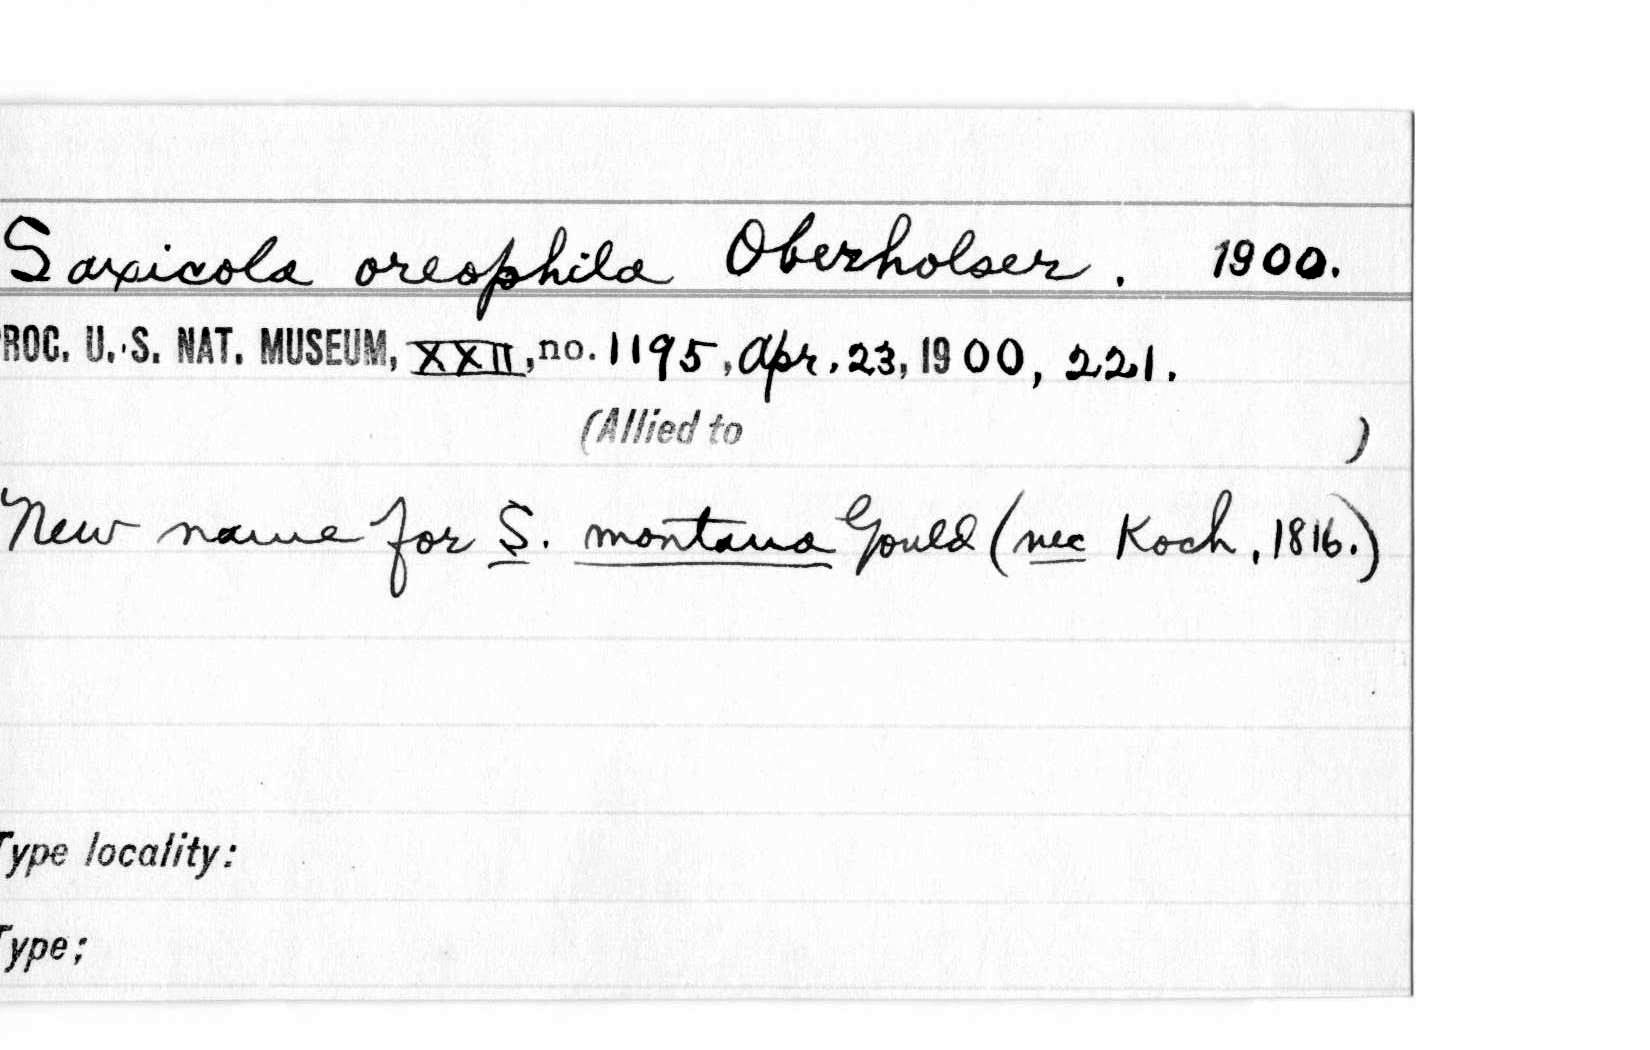 Saxicola oreophila Oberholser. 1900.
PROC. U. S. NAT. MUSEUM, XXII, no. 1195, Apr. 23, 1900, 221.
(Allied to )
New name for S. montana Gould (nec Koch, 1816.)
Type locality:
Type;